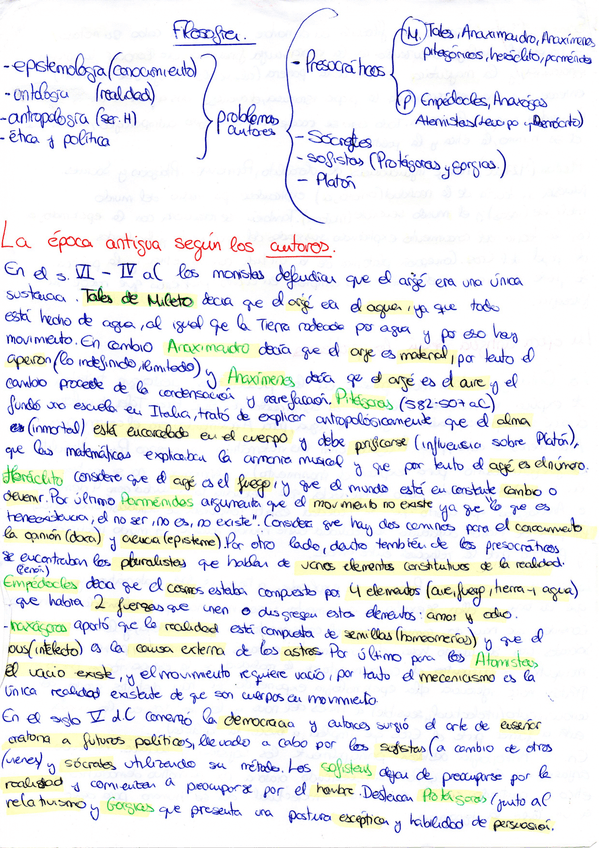 Filosofía.
- epistemología (conocimiento)
- ontología (realidad)
- antropología (ser. H)
- ética y política
problemas
autores
- Presocráticos
M. Tales, Anaximandro, Anaxímenes
pitagóricos, heráclito, parménides
P Empédocles, Anaxágoras
Atomistas (Leucipo y Demócrito)
- Sócrates
- sofistas (Protágoras y Gorgias.)
- Platón
La época antigua según los autores.
En el s. VI - IV aC los monistas defendían que el arjé era una única
sustancia. Tales de Mileto decía que el arjé era el agua, ya que todo
está hecho de agua, al igual que la Tierra rodeada por agua y por eso hay
movimiento. En cambio Anaximandro decía que el arje es material, por tanto el
apeiron (lo indefinido, ilimitado) y Anaxímenes decía que el arjé es el aire y el
cambio procede de la condensación y rarefacción. Pitágoras (582-507 aC)
fundó una escuela en Italia, trató de explicar antropológicamente que el alma
es (inmortal) está encarcelada en el cuerpo y debe purificarse (influencia sobre Platón),
que las matemáticas explicaban la armonía musical y que por tanto el arjé es el número.
Heráclito considera que el arjé es el fuego, y que el mundo está en constate cambio o
devenir. Por último Parménides argumenta que el movimiento no existe ya que "lo que es
tiene existencia, el no ser, no es, no existe". Considera que hay dos caminos para el conocimiento
la opinión (doxa) y ciencia (episteme). Por otro lado, dentro también de los presocráticos
se encontraban los pluralistas que hablan de varios elementos constitutivos de la realidad.
Empédocles decía que el cosmos estaba compuesto por 4 elementos (aire, fuego, tierra y agua)
que había 2 fuerzas que unen o disgregan estos elementos: amor y odio.
Anaxágoras aportó que la realidad está compuesta de semillas (homeomerías) y que el
nous (intelecto) es la causa externa de los astros. Por último para los Atomistas
el vacío existe, y el movimiento requiere vacío, por tanto el mecanicismo es la
única realidad existente de que son cuerpos en movimiento.
En el siglo V d.C comenzó la democracia y entonces surgió el arte de enseñar
oratoria a futuros políticos, llevado a cabo por los sofistas (a cambio de otros
y sócrates utilizando su método. Los sofistas dejan de preocuparse por la
realidad y comienzan a preocuparse por el hombre. Destacan Protágoras (junto al
relativismo y Gorgias que presenta una postura escéptica y habilidad de persuasión.